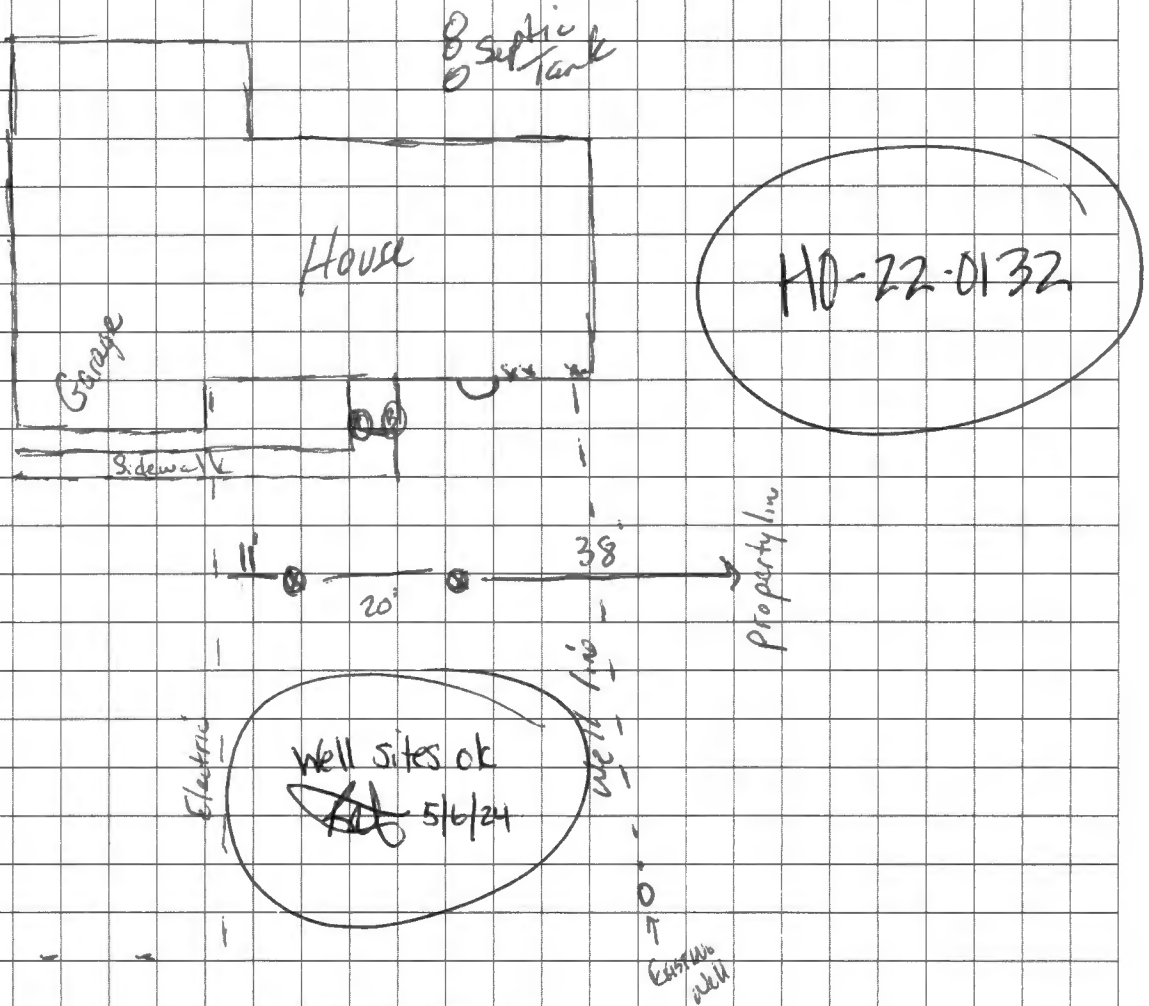 Septic
Tank
House
HO-22-0132
Garage
Sidewalk
11'
20'
38'
Property line
Electric
Well line
Well sites ok
5/6/24
Existing
Well